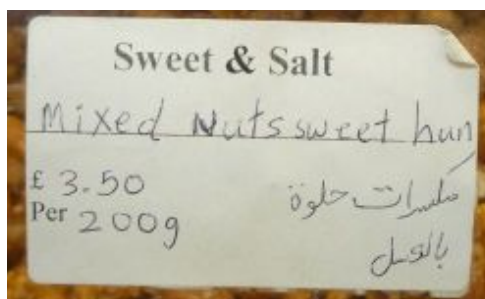 Sweet & Salt
Mixed Nuts sweet hun
£ 3.50
Per 200g
مكسرات حلوة
بالعسل